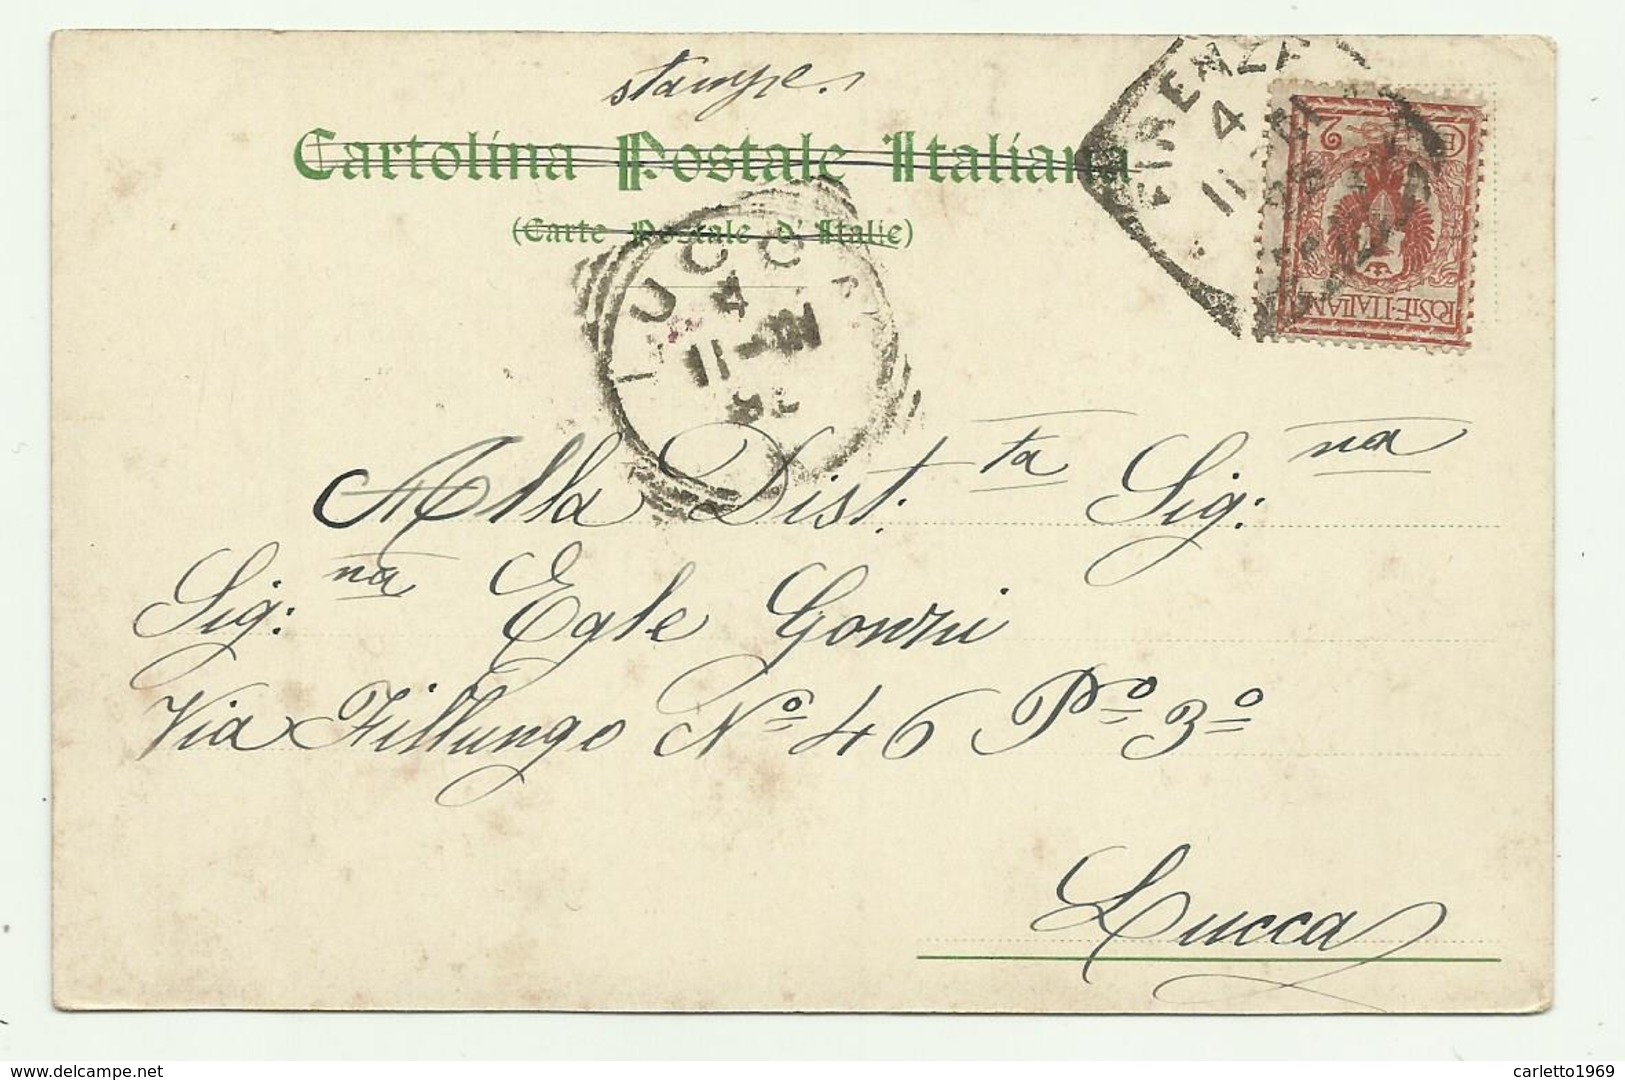 stampe.
Cartolina Postale Italiana
(Carte Postale d'Italie)
FIRENZE
4
11
POSTE·ITALIANE
2
LUCCA
4
11
Alla Dist:ta Sig:na
Sig:na Egle Gonzi
Via Fillungo Nº 46 Pº 3º
Lucca
delcampe.net
carletto1969